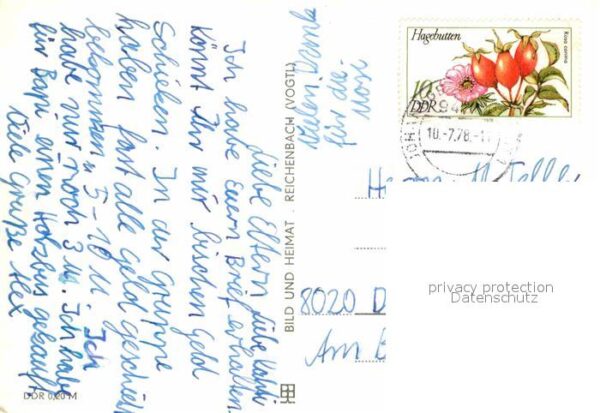 Liebe Eltern, liebe
Ich habe Euern Brief erhalten.
Könnt Ihr mir bischen Geld
Schicken. In der Gruppe
haben fast alle Geld geschickt
bekommen u 5-10 M. Ich
habe nur noch 3 M. Ich habe
für Bepi einen Holzbus gekauft
Viele Grüße Alex
Vielen Dank
für die
DDR 0,20 M
BILD UND HEIMAT REICHENBACH (VOGTL)
Hagebutten
Rosa canina
10
DDR
10.-7.78.-1
Herrn
8020 D
Am
privacy protection
Datenschutz